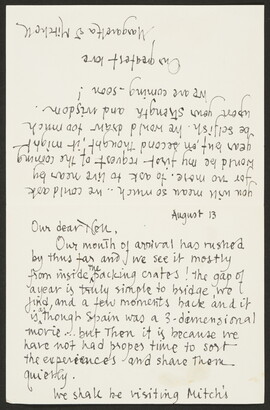 August 13
Our dear
Our month of arrival has rushed
by thus far and we see it mostly
from inside the packing crates! the gap of
a year is truly simple to bridge we
find, and a few moments back and it
is though Spain was a 3-dimensional
movie .. but then it is because we
have not had proper time to sort
the experiences and share them
quickly.
We shall be visiting Mitch's
you will mean so much .. we could ask
for no more. to ask to be near you
would be my first request of the coming
year but, on second thought, it might
be selfish. he would draw too much
upon your strength and wisdom.
We are coming - soon!
Our greatest love
Margaretta & Mitchell